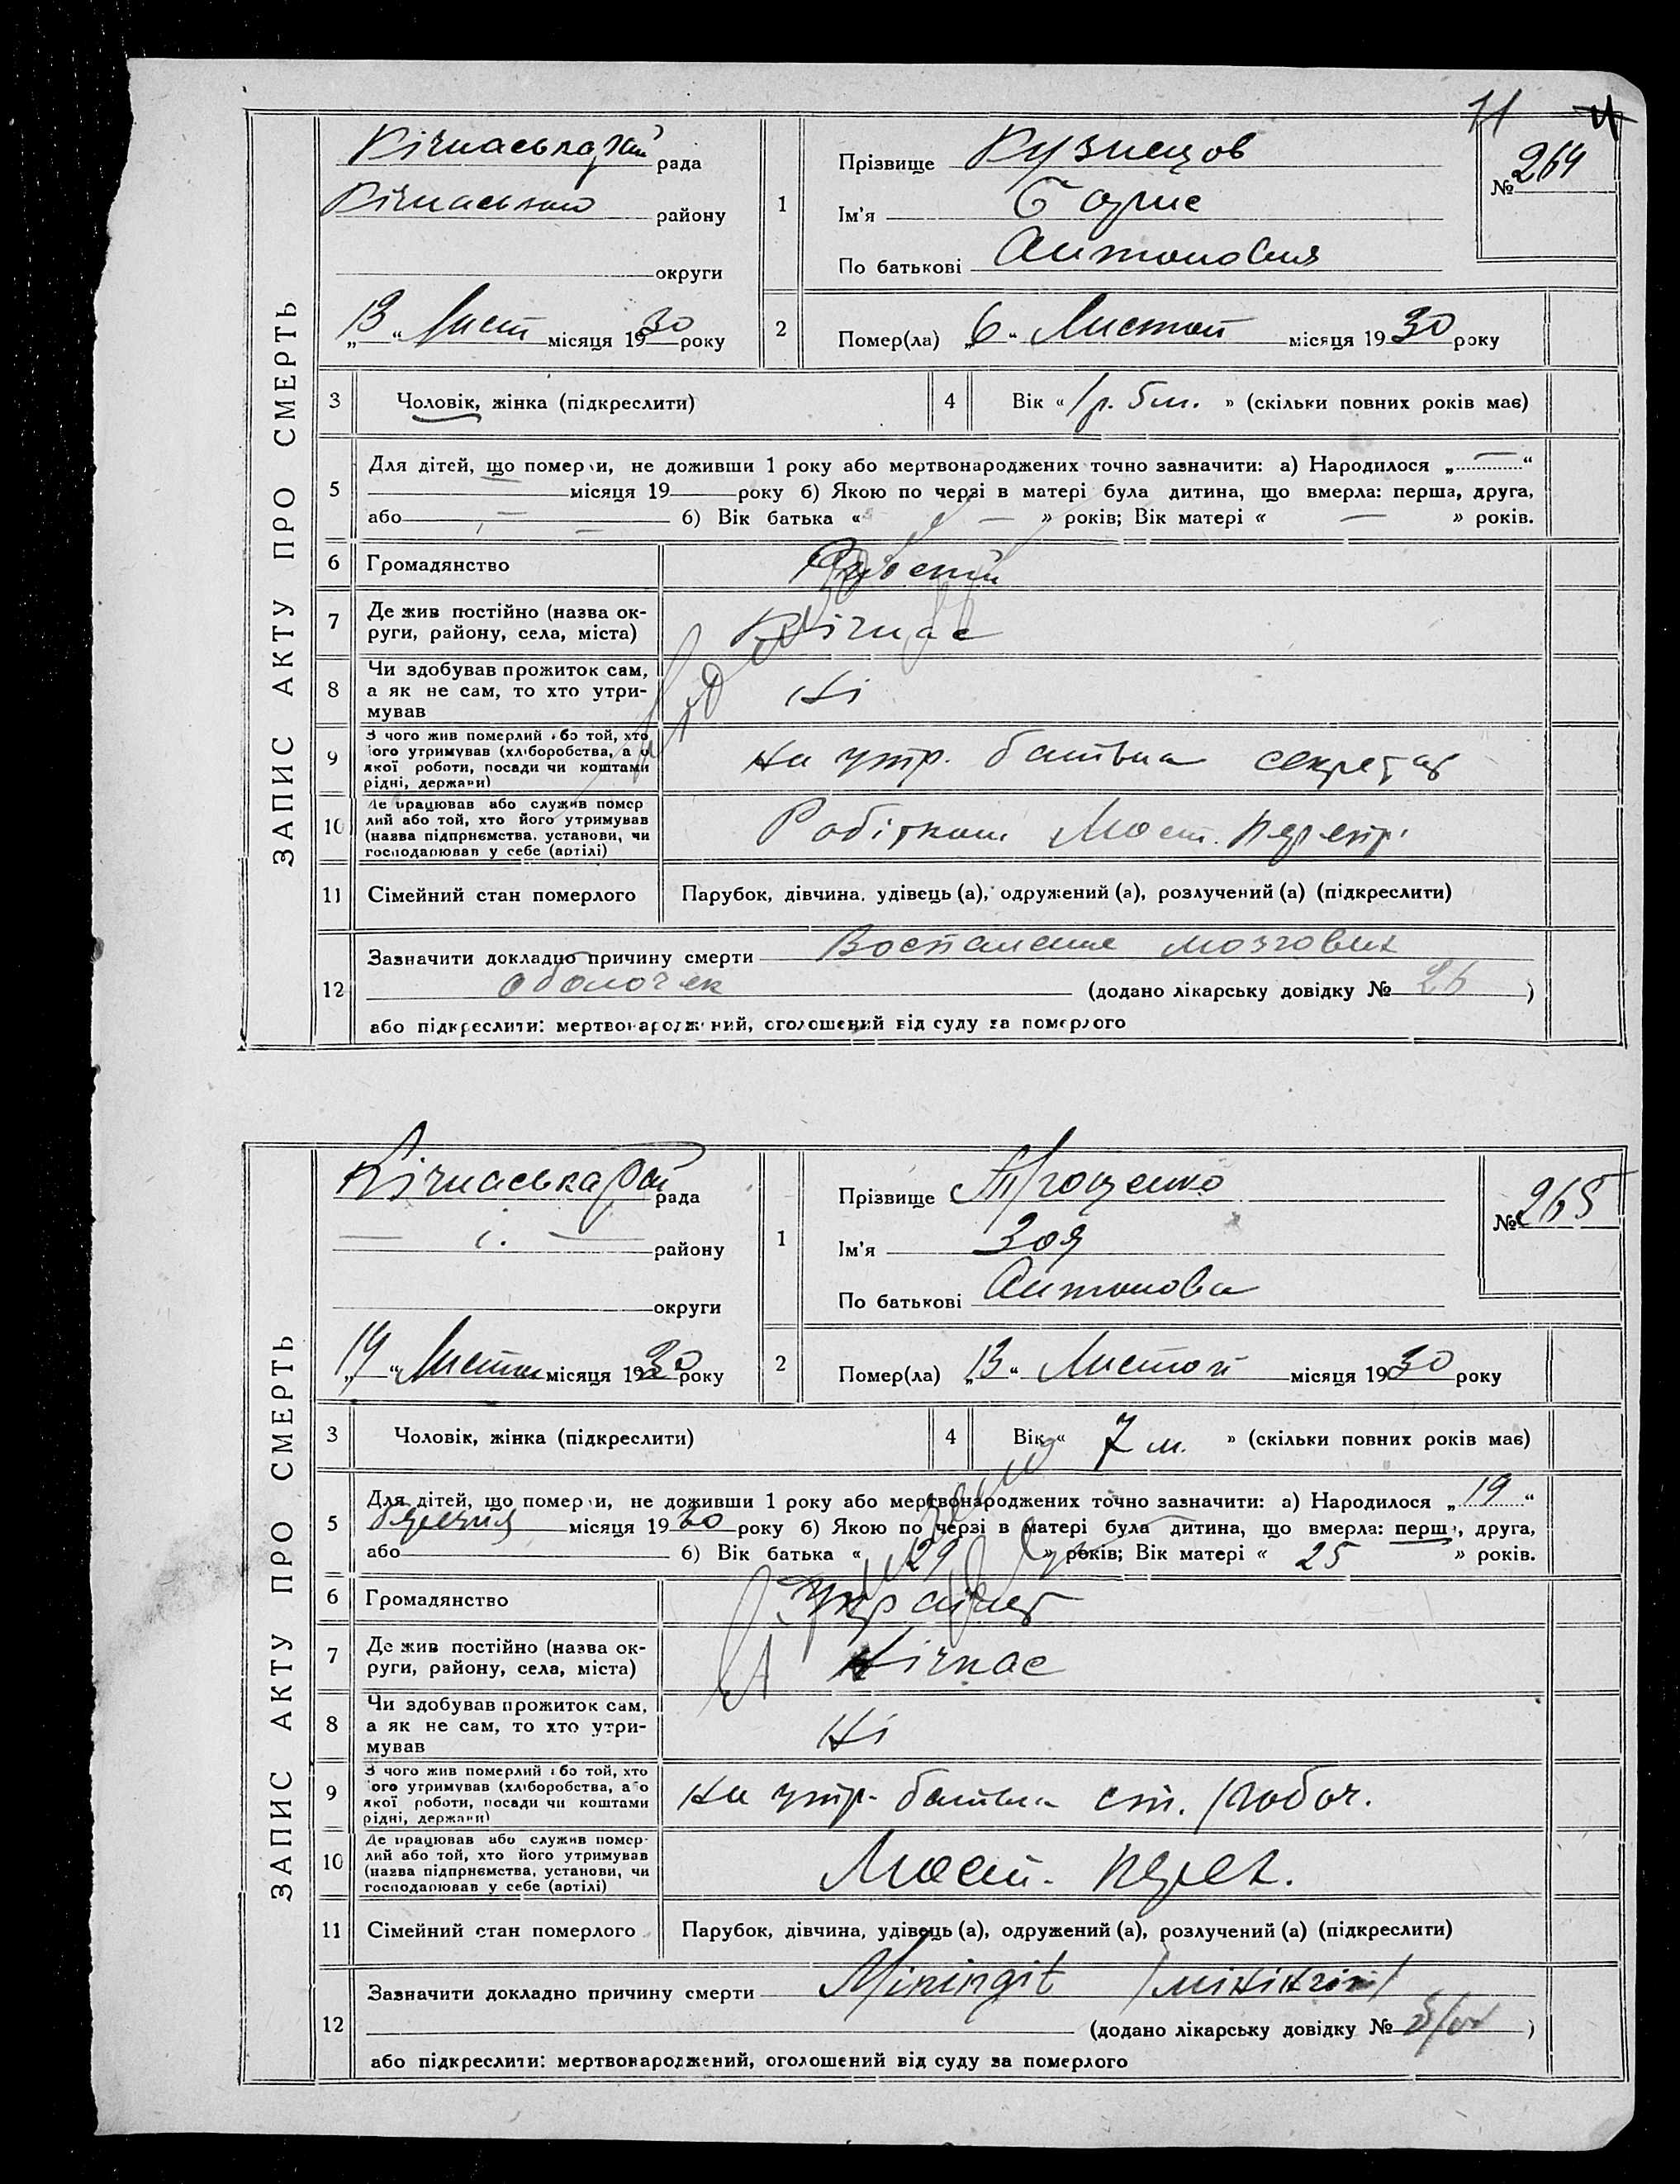 71
ЗАПИС АКТУ ПРО СМЕРТЬ
Кічкаська рада
Кічкаського району
округи
„13“ Лист місяця 1930 року
1 Прізвище Кузнецов
Ім'я Борис
По батькові Антонович
№ 264
2 Помер(ла) „6“ Листоп місяця 1930 року
3 Чоловік, жінка (підкреслити)
4 Вік « 1 р. 5 м. » (скільки повних років має)
5 Для дітей, що померли, не доживши 1 року або мертвонароджених точно зазначити: а) Народилося „ — “
місяця 19 року б) Якою по черзі в матері була дитина, що вмерла: перша, друга,
або — б) Вік батька « — » років; Вік матері « — » років.
6 Громадянство
7 Де жив постійно (назва ок-
руги, району, села, міста) Кічкас
8 Чи здобував прожиток сам,
а як не сам, то хто утри-
мував Ні
9 З чого жив померлий або той, хто
його утримував (хліборобства, або
якої роботи, посади чи коштами
рідні, держави) на утр. батька секретар
10 Де працював або служив помер
лий або той, хто його утримував
(назва підприємства, установи, чи
господарював у себе (артілі) Робітком Мост. перех.
11 Сімейний стан померлого Парубок, дівчина, удівець (а), одружений (а), розлучений (а) (підкреслити)
12 Зазначити докладно причину смерти Воспаление мозгових
оболочек (додано лікарську довідку № 26 )
або підкреслити: мертвонароджений, оголошений від суду за померлого
ЗАПИС АКТУ ПРО СМЕРТЬ
Кічкаська рада
— і. — району
округи
„14“ Листоп місяця 1930 року
1 Прізвище Троценко
Ім'я Зоя
По батькові Антонова
№ 265
2 Помер(ла) „13“ Листоп місяця 1930 року
3 Чоловік, жінка (підкреслити)
4 Вік « 7 м. » (скільки повних років має)
5 Для дітей, що померли, не доживши 1 року або мертвонароджених точно зазначити: а) Народилося „19“
березня місяця 1930 року б) Якою по черзі в матері була дитина, що вмерла: перша, друга,
або б) Вік батька « 29 » років; Вік матері « 25 » років.
6 Громадянство
7 Де жив постійно (назва ок-
руги, району, села, міста) Кічкас
8 Чи здобував прожиток сам,
а як не сам, то хто утри-
мував Ні
9 З чого жив померлий або той, хто
його утримував (хліборобства, або
якої роботи, посади чи коштами
рідні, держави) на утр. батька ст. робоч.
10 Де працював або служив помер-
лий або той, хто його утримував
(назва підприємства, установи, чи
господарював у себе (артілі) Мост. перех.
11 Сімейний стан померлого Парубок, дівчина, удівець (а), одружений (а), розлучений (а) (підкреслити)
12 Зазначити докладно причину смерти Miningit /мінінгіт/
(додано лікарську довідку № )
або підкреслити: мертвонароджений, оголошений від суду за померлого